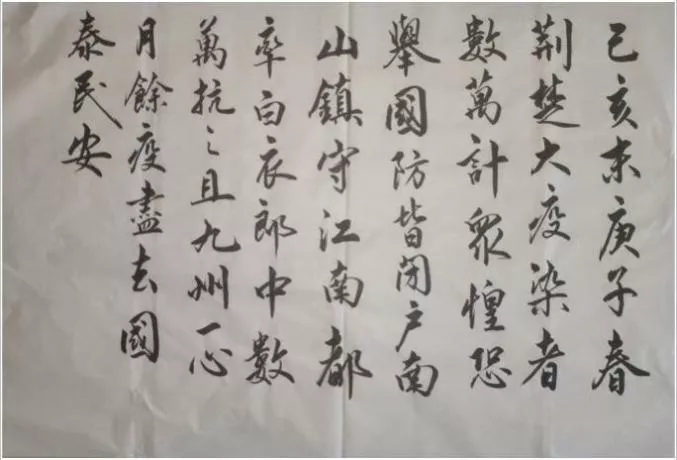 己亥末庚子春
荆楚大疫染者
數萬計眾惶恐
舉國防皆闭户南
山鎮守江南都
率白衣郎中數
萬抗之且九州一心
月餘疫盡去國
泰民安